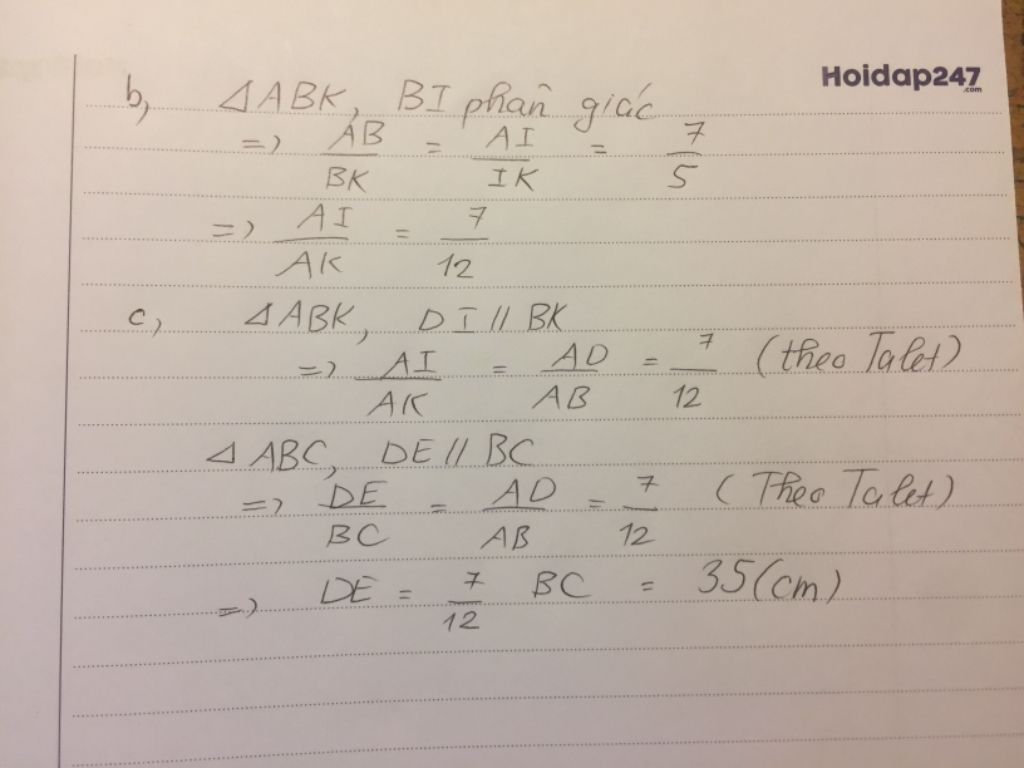 Hoidap247
.com
b, ΔABK, BI phân giác
=> AB/BK = AI/IK = 7/5
=> AI/AK = 7/12
c, ΔABK, DI // BK
=> AI/AK = AD/AB = 7/12 (theo Talet)
ΔABC, DE // BC
=> DE/BC = AD/AB = 7/12 (Theo Talet)
=> DE = 7/12 BC = 35(cm)